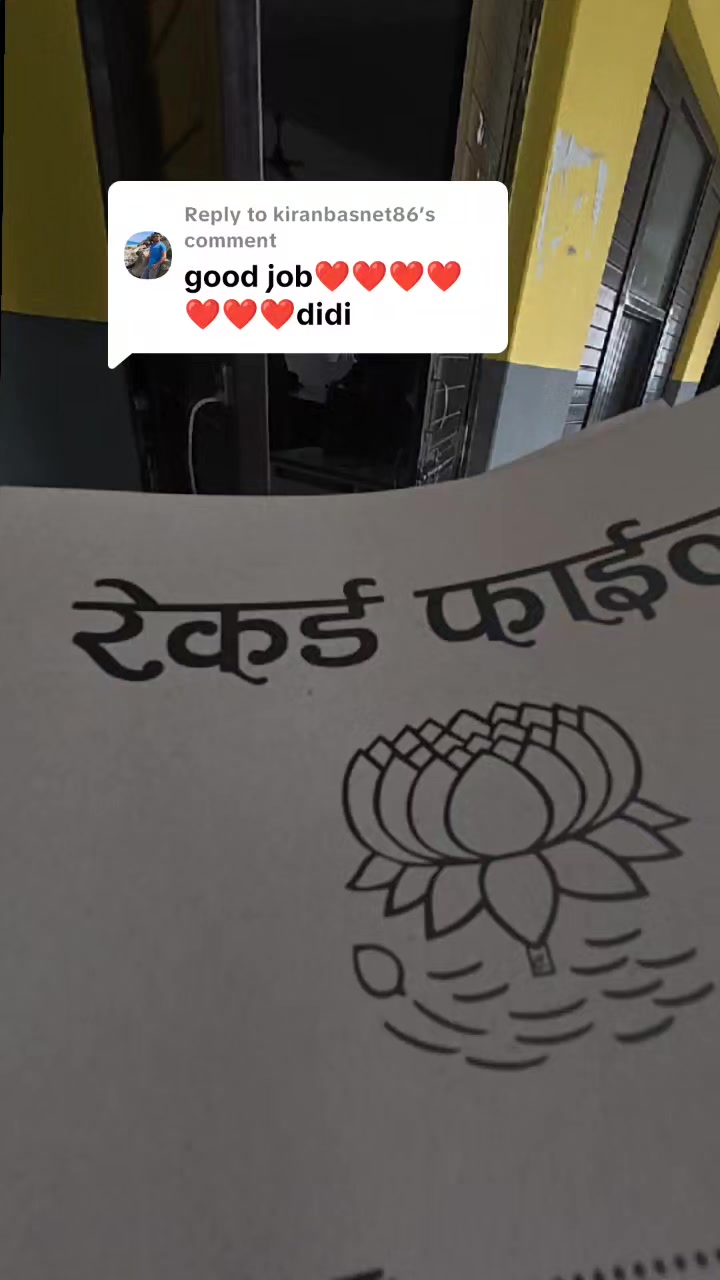 Reply to kiranbasnet86's
comment
good job❤️❤️❤️❤️
❤️❤️❤️didi
रेकर्ड फाईल